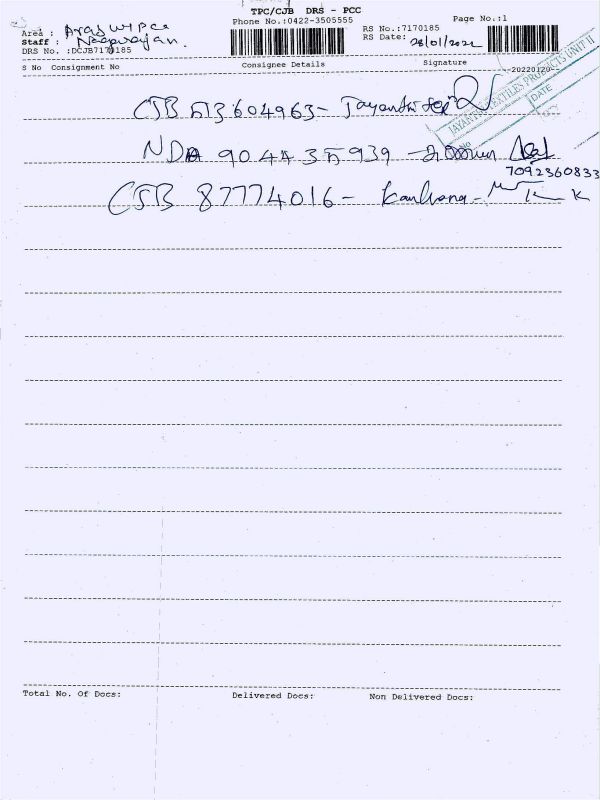 TPC/CJB DRS - PCC
Phone No.:0422-3505555
Page No.:1
Area :
Staff : Nagarajan.
DRS No. :DCJB7170185
RS No.:7170185
RS Date: 28/01/2022
S No Consignment No Consignee Details Signature
20220120
JAYANTHI TEXTILES PRODUCTS UNIT II
No DATE
CJB 513604963 - Jayanthi tex
NDA 904435939 -
7092360833
CJB 87774016 -
Total No. Of Docs: Delivered Docs: Non Delivered Docs: